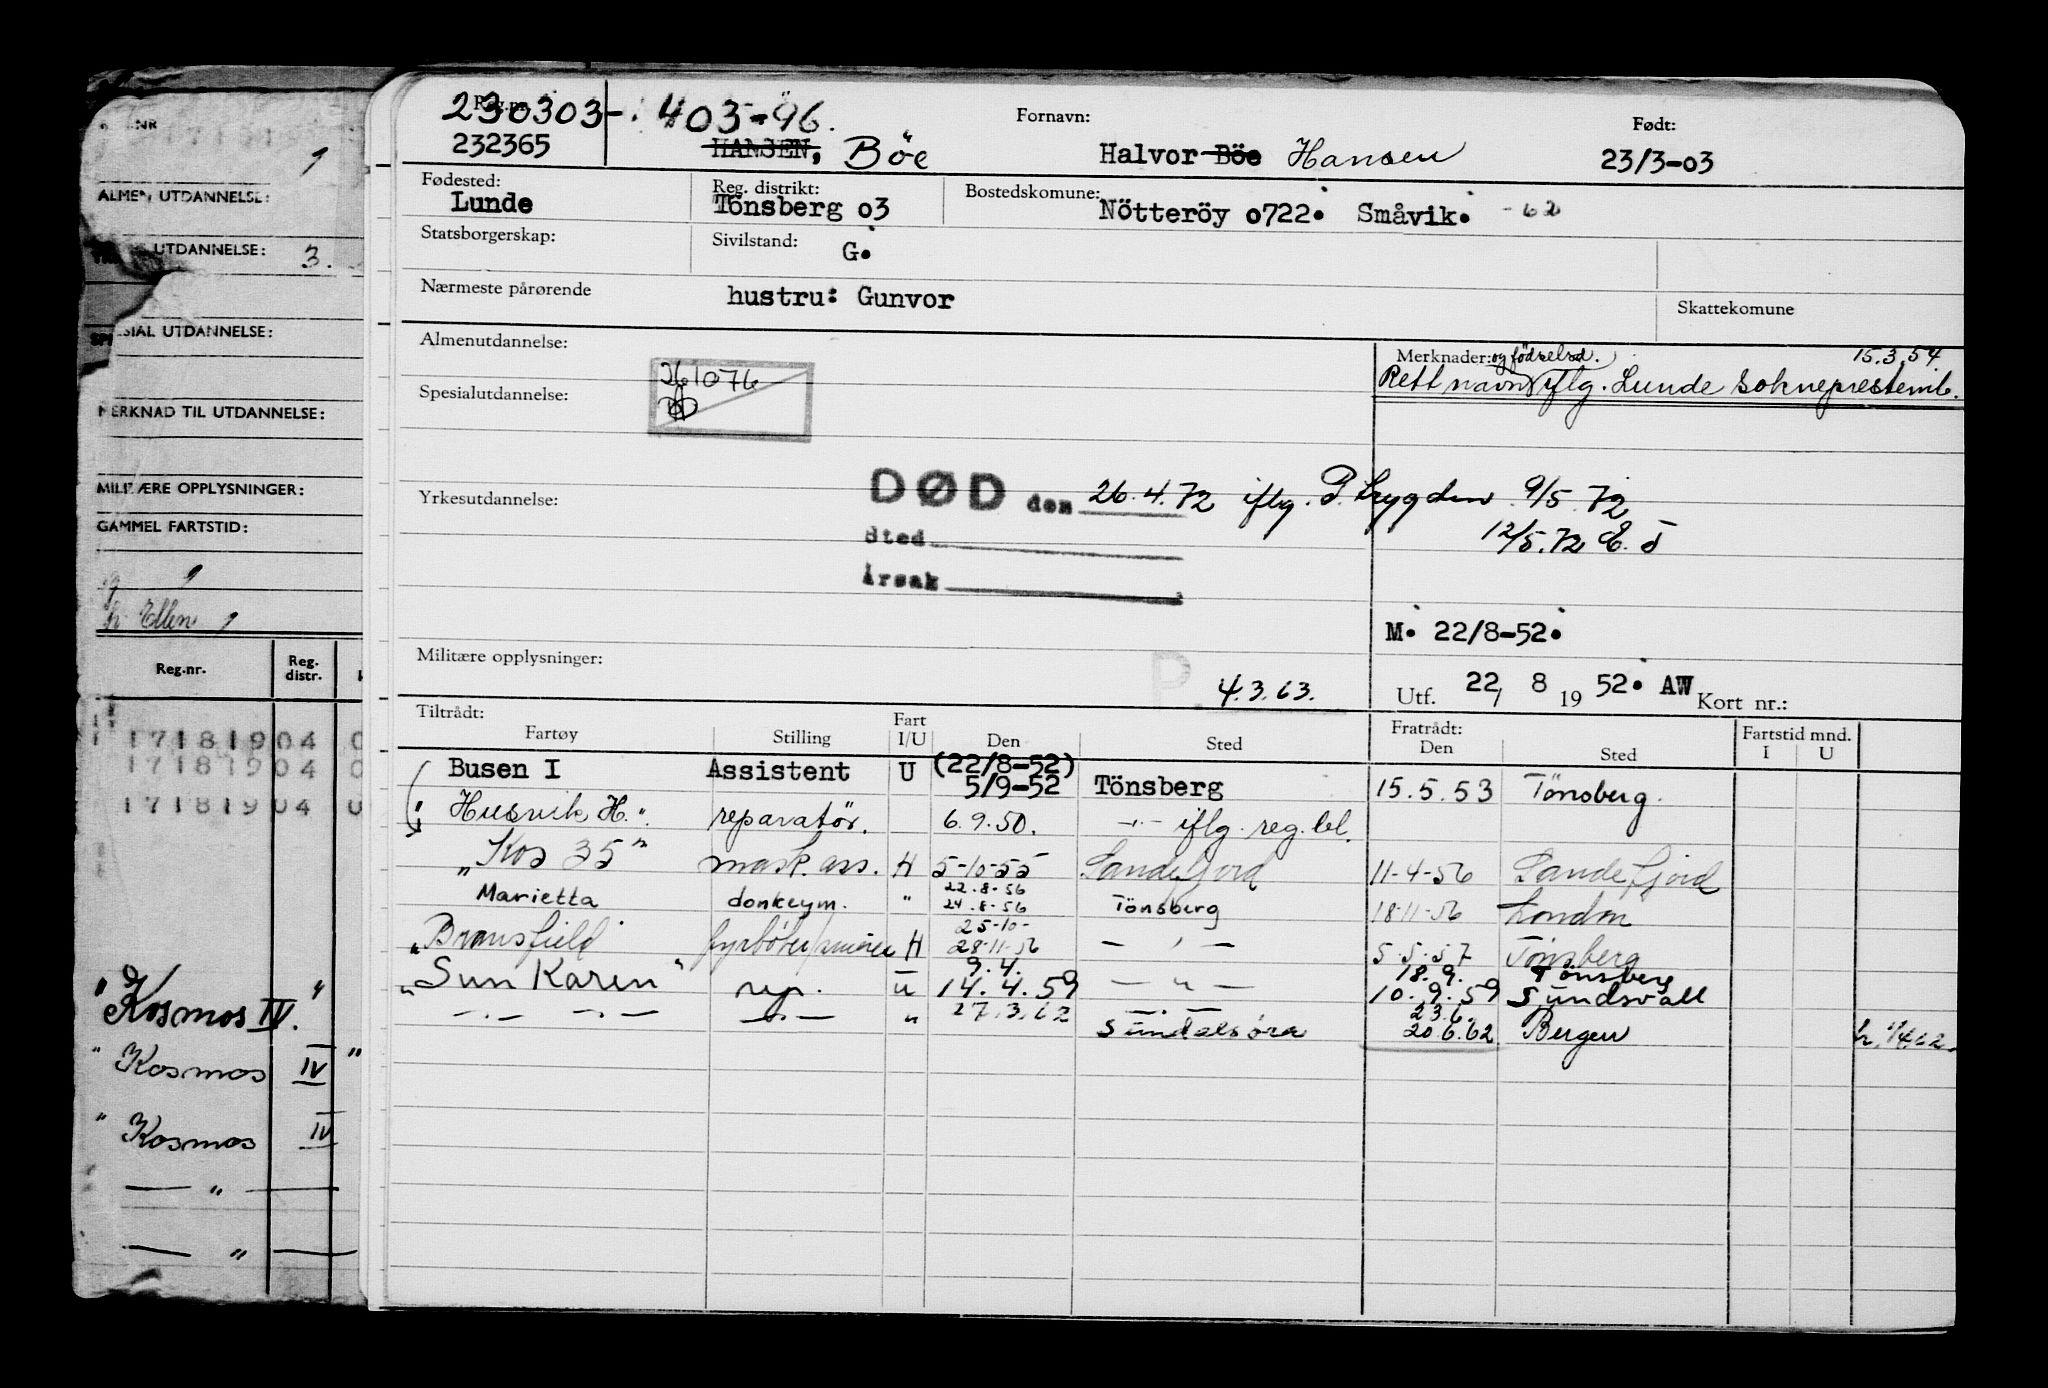 Reg.nr.
230303-. 403-96.
232365
HANSEN, Böe
Fornavn:
Halvor Böe Hansen
Født:
23/3-03
Fødested:
Lunde
Reg. distrikt:
Tönsberg o3
Bostedskomune:
Nötteröy o722. Småvik. -62
Statsborgerskap:
Sivilstand:
G.
Nærmeste pårørende
hustru: Gunvor
Skattekomune
Almenutdannelse:
Merknader: og fødselsd. 15.3.54
Rett navn iflg. Lunde sokneprestemb.
261076
Spesialutdannelse:
Yrkesutdannelse:
DØD den 26.4.72 iflg. P. trygden 9/5.72
12/5.72
Sted
Årsak
M. 22/8-52.
Militære opplysninger:
P
4.3.63.
Utf. 22/ 8 19 52. AW Kort nr.:
Tiltrådt:
Fartøy
Stilling
Fart
I/U
Den
Sted
Fratrådt:
Den
Sted
Fartstid mnd.
I
U
Busen I Assistent U (22/8-52)
5/9-52 Tönsberg 15.5.53 Tönsberg.
" Husvik H." reparatör. 6.9.50. -"- iflg. reg.bl.
"Kos 35" mask.ass. H 5-10-55 Sandefjord 11-4-56 Sandefjord
22.8-56
Marietta donkeym. " 24.8-56 Tönsberg 18-11-56 London
25-10-
"Bransfield H 28-11-56 - " - 5.5.57 Tönsberg
9.4. 18.9. Tönsberg
"Sun Karen" rep. U 14.4.59 - " - 10.9.59 Sundsvall
23.6.
-"- -"- -"- " 27.3.62 Sundalsöra 20.6.62 Bergen
NR
ALMEN UTDANNELSE:
UTDANNELSE: 3.
SIAL UTDANNELSE:
MERKNAD TIL UTDANNELSE:
MILITÆRE OPPLYSNINGER:
GAMMEL FARTSTID:
Ellen
Reg.nr.
Reg.
distr.
17181904 0
17181904 0
17181904 0
"Kosmos IV."
"Kosmos IV"
"Kosmos IV
— " —
— " —